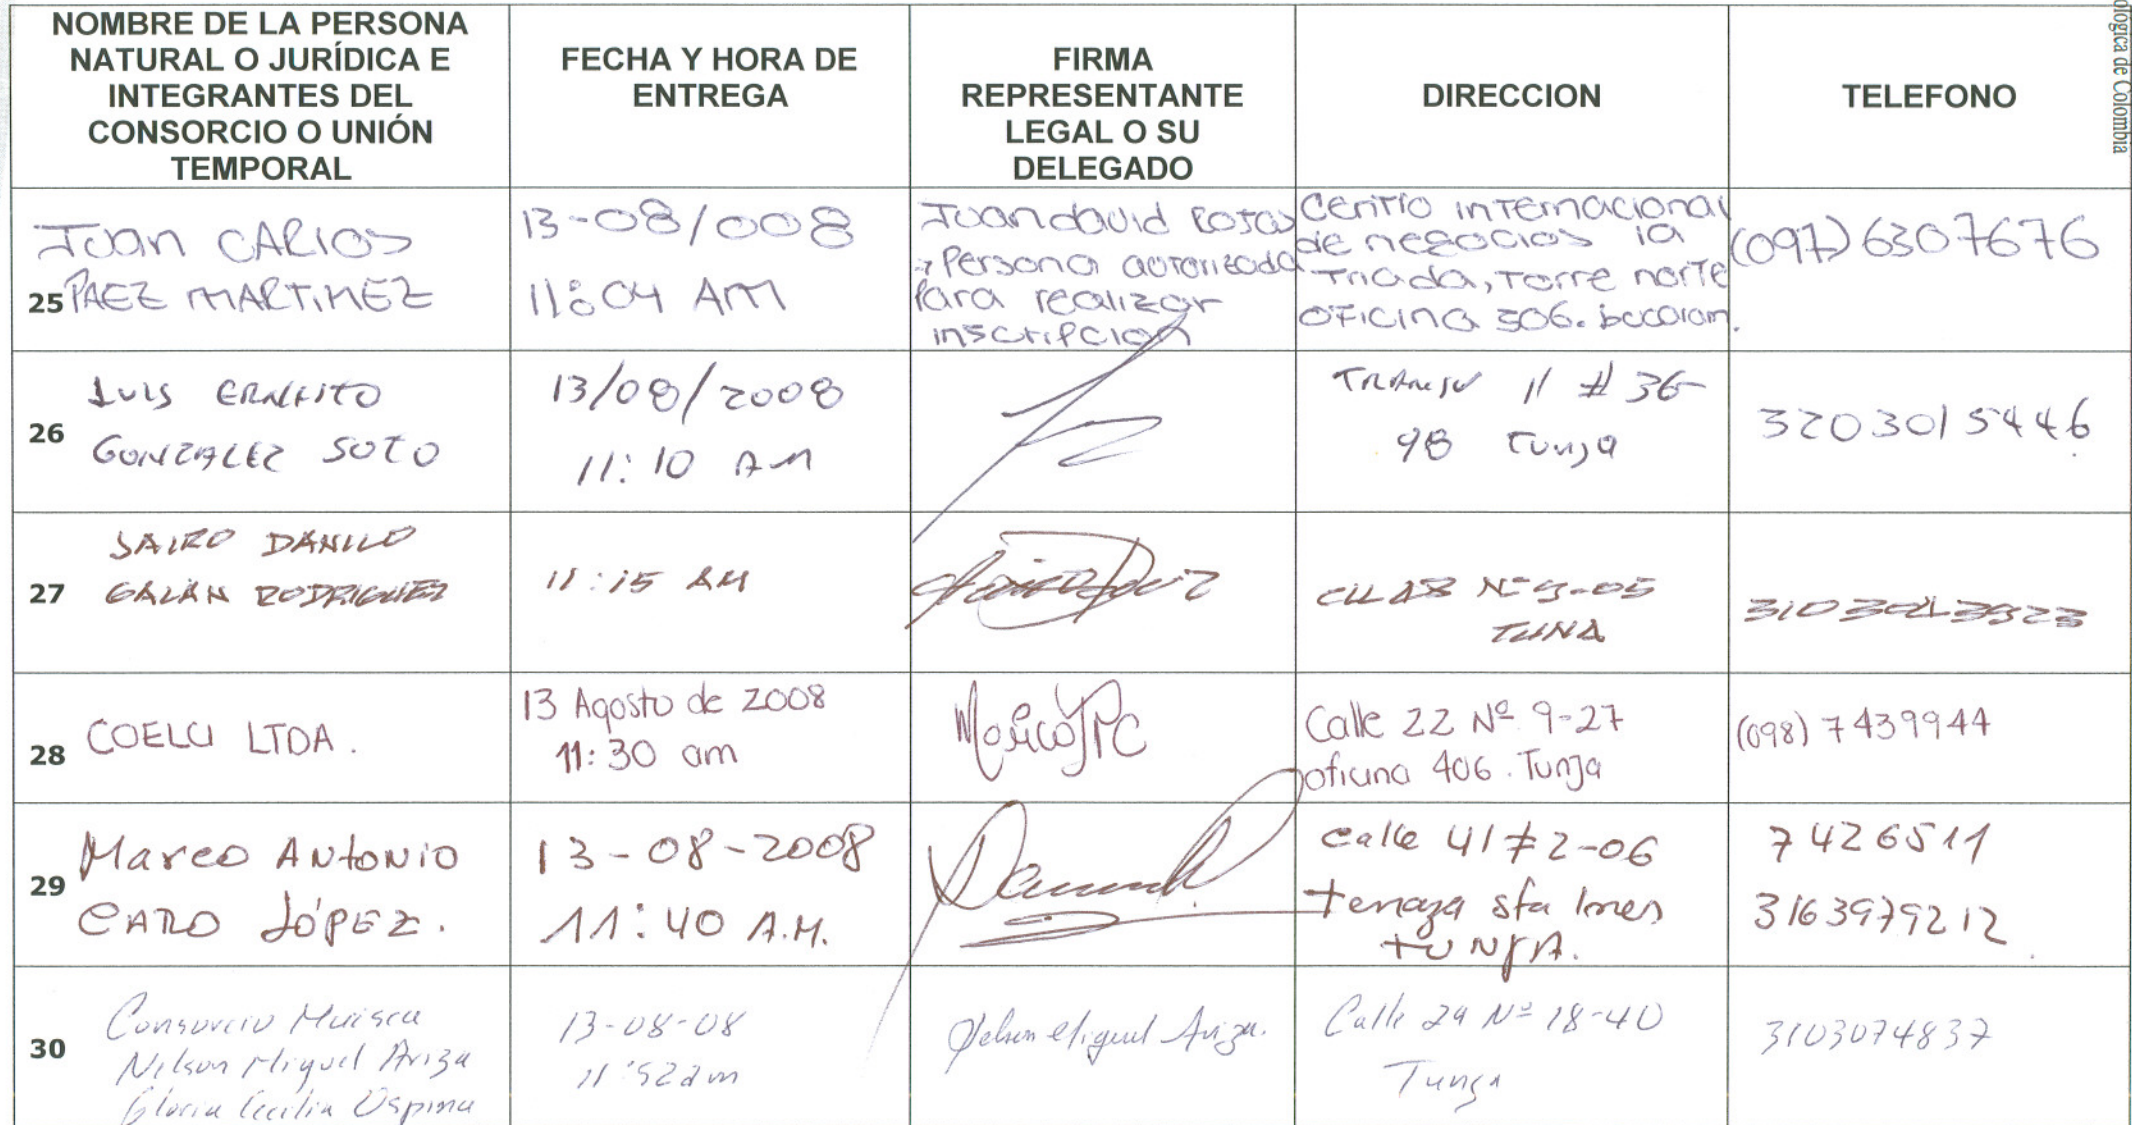 ológica de Colombia
NOMBRE DE LA PERSONA
NATURAL O JURÍDICA E
INTEGRANTES DEL
CONSORCIO O UNIÓN
TEMPORAL
FECHA Y HORA DE
ENTREGA
FIRMA
REPRESENTANTE
LEGAL O SU
DELEGADO
DIRECCION
TELEFONO
25
Juan CARlos
PAEZ MARTINEZ
13-08/008
11:04 AM
Juan david Rojas
Persona autorizada
Para realizar
inscripcion
Centro internacional
de negocios la
Triada, Torre norte
oficina 306.
(097) 6307676
26
LUIS ERNESTO
GONZALEZ SOTO
13/08/2008
11:10 AM
TRANSV 11 # 36-
98 Tunja
3203015446
27
JAIRO DANILO
GALÁN RODRIGUEZ
11:15 AM
Nº 9-05
28
COELCI LTDA.
13 Agosto de 2008
11:30 am
Calle 22 Nº 9-27
oficina 406. Tunja
(098) 7439944
29
Marco ANtoNio
CARO LÓPEZ.
13-08-2008
11:40 A.M.
calle 41 # 2-06
sta Ines
tUNJA.
7426511
3163979212
30
Consorcio Muisca
Nilson Miguel Ariza
Gloria Cecilia Ospina
13-08-08
11:52am
Nelson Miguel Ariza.
Calle 29 Nº 18-40
Tunja
3103074837